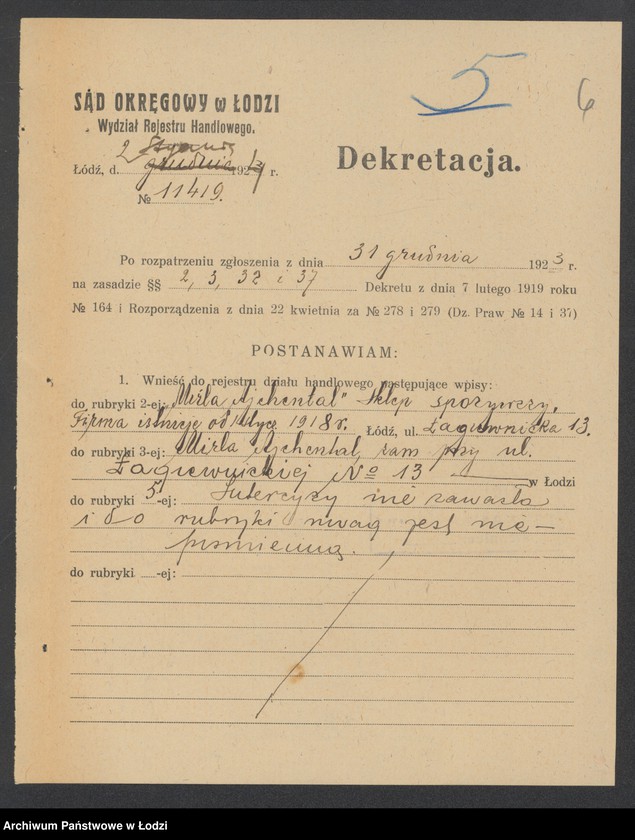 5
6
SĄD OKRĘGOWY w ŁODZI
Wydział Rejestru Handlowego.
2 stycznia
Łódź, d. grudnia 1924 r.
№ 11419.
Dekretacja.
Po rozpatrzeniu zgłoszenia z dnia 31 grudnia 1923 r.
na zasadzie §§ 2, 3, 32 i 37 Dekretu z dnia 7 lutego 1919 roku
№ 164 i Rozporządzenia z dnia 22 kwietnia za № 278 i 279 (Dz. Praw № 14 i 37)
POSTANAWIAM:
1. Wnieść do rejestru działu handlowego następujące wpisy:
do rubryki 2-ej: „Mirla Ajchental" Sklep spożywczy.
Firma istnieje od 1 stycz. 1918 r. Łódź, ul. Łagiewnicka 13.
do rubryki 3-ej: Mirla Ajchental, zam przy ul.
Łagiewnickiej № 13 w Łodzi
do rubryki 5-ej: Intercyzy nie zawarła
i do rubryki uwag jest nie-
piśmienną.
do rubryki -ej:
Archiwum Państwowe w Łodzi